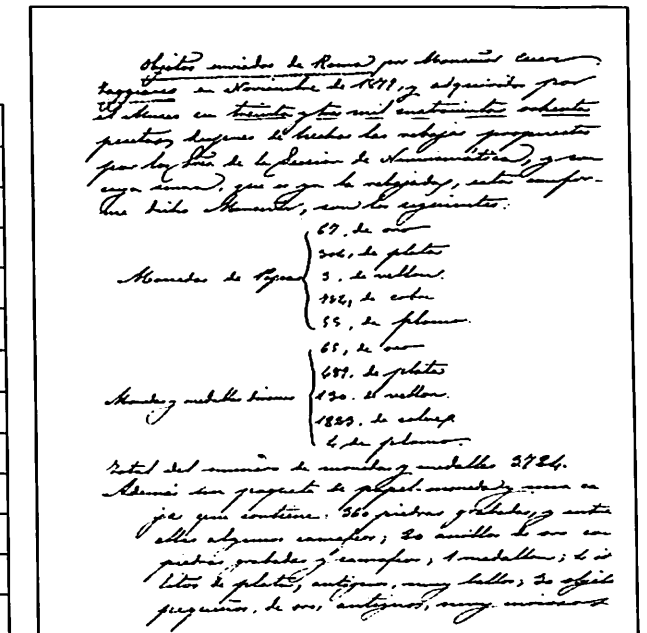 Objetos enviados de Roma por Monseñor Cuos
Taggiasco en Noviembre de 1879, y adquiridos por
el Museo en treinta y tres mil cuatrocientas ochenta
pesetas, despues de hechas las rebajas propuestas
por los Sres de la Seccion de Numismática, y con
cuya suma, que es ya la rebajada, está confor-
me dicho Monseñor, son los siguientes:
67, de oro
de plata
Monedas de Papas
3, de vellon.
de cobre
55, de plomo.
65, de oro
489, de plata
Monedas y medallas diversas
130, de vellon.
1883, de cobre
4 de plomo.
Total del numero de monedas y medallas 3724.
Además un paquete de papel-moneda y una ca
ja que contiene: 360 piedras grabadas, y entre
ellas algunos camafeos; 20 anillos de oro con
piedras grabadas y camafeos; 1 medallon;
de plata, antiguos, muy bellos; 30 objetos
pequeños, de oro, antiguos, muy curiosos